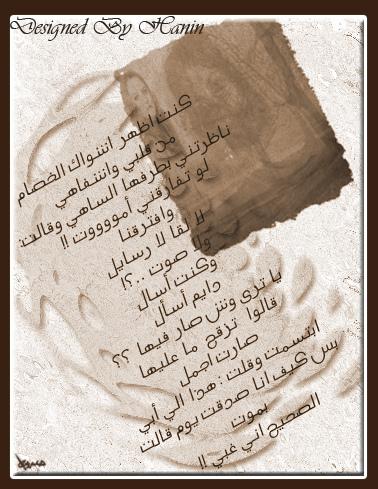 Designed By Hanin
كنت اطهر انشواك الخصام
من قلبي وانشفاهي
ناظرتني بطرفها الساهي وقالت:
لو تفارقني أموووووت !!
وافترقنا
لا لقا لا رسايل
ولا صوت ..؟!
وكنت أسأل
دايم أسأل
يا ترى ونش صار فيها ؟؟
قالوا تزقح ما عليها
صارت اجمل
ابتسمت وقلت : هذا الي أبي
بس كيف أنا صدقت يوم قالت
بموت
الصحيح اني غبي !!